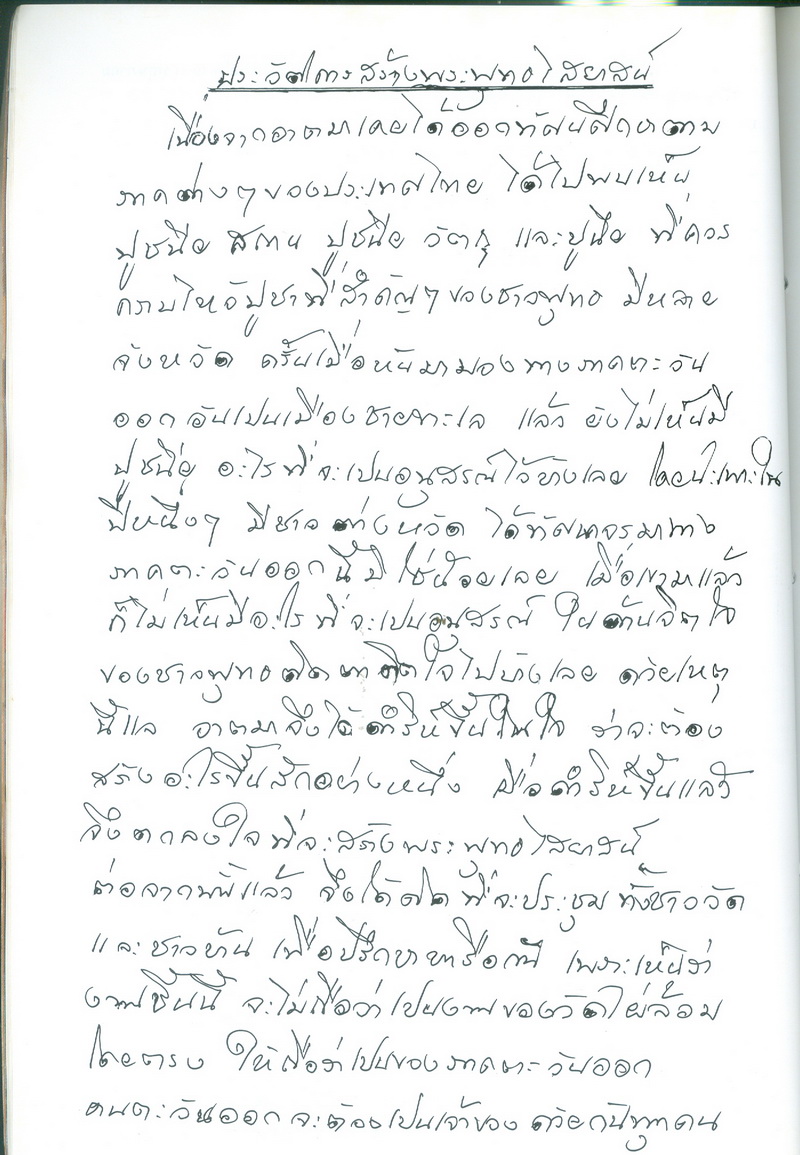 ประวัติการสร้างพระพุทธไสยาสน์
เนื่องจากอาตมาเคยได้ออกทัศนศึกษาตาม
ภาคต่างๆของประเทศไทย ได้ไปพบเห็น
ปูชนีย สถาน ปูชนีย วัตถุ และปูนีย ที่ควร
กราบไหว้บูชาที่สำคัญๆของชาวพุทธ มีหลาย
จังหวัด ครั้นเมื่อหันมามองทางภาคตะวัน
ออก อันเป็นเมืองชายทะเล แล้ว ยังไม่เห็นมี
ปูชนีย อะไรที่จะเป็นอนุสรณ์ไว้บ้างเลย โดยฉะเพาะใน
ปีหนึ่งๆ มีชาวต่างหวัด ได้ทัศนาจรมาทาง
ภาคตะวันออกนี้มิใช่น้อยเลย เมื่อเขามาแล้ว
ก็ไม่เห็นมีอะไรที่จะเป็นอนุสรณ์ ในด้านจิตใจ
ของชาวพุทธติดตาติดใจไปบ้างเลย ด้วยเหตุ
นี้แล อาตมาจึงได้ดำริห์ขึ้นในใจ ว่าจะต้อง
สร้างอะไรขึ้นสักอย่างหนึ่ง เมื่อดำริห์ขึ้นแล้ว
จึงตกลงใจที่จะสร้างพระพุทธไสยาสน์
ต่อจากนี้แล้ว จึงได้คิดที่จะประชุม ทั้งชาววัด
และชาวบ้าน เพื่อปรึกษาหารือกัน เพราะเห็นว่า
งานชิ้นนี้ จะไม่ถือว่าเป็นงานของวัดไผ่ล้อม
โดยตรง ให้ถือว่าเป็นของภาคตะวันออก
คนตะวันออกจะต้องเป็นเจ้าของ ด้วยกันทุกคน